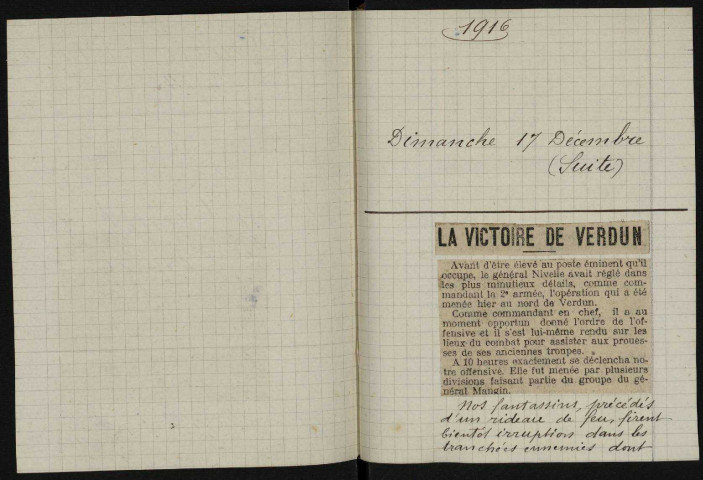 1916
Dimanche 17 Décembre
(Suite)
LA VICTOIRE DE VERDUN
Avant d'être élevé au poste éminent qu'il
occupe, le général Nivelle avait réglé dans
les plus minutieux détails, comme com-
mandant la 2e armée, l'opération qui a été
menée hier au nord de Verdun.
Comme commandant en chef, il a au
moment opportun donné l'ordre de l'of-
fensive et il s'est lui-même rendu sur les
lieux du combat pour assister aux proues-
ses de ses anciennes troupes.
A 10 heures exactement se déclencha no-
tre offensive. Elle fut menée par plusieurs
divisions faisant partie du groupe du gé-
néral Mangin.
Nos fantassins, précédés
d'un rideau de feu, firent
bientôt irruption dans les
tranchées ennemies dont